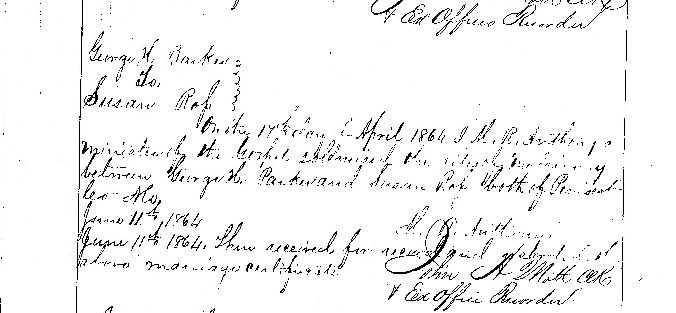 & Ex Officio Recorder
George H. Parker
To
Susan Ross
On the 17th day of April 1864 I M. R. Anthony a
minister of the Gospel solemnized the rites of matrimony
between George H. Parker and Susan Ross both of
Co Mo,
June 11th, 1864
M. R. Anthony
June 11th 1864. Then received for record and recorded
above marriage certificate
John A Mott Clk
& Ex Officio Recorder